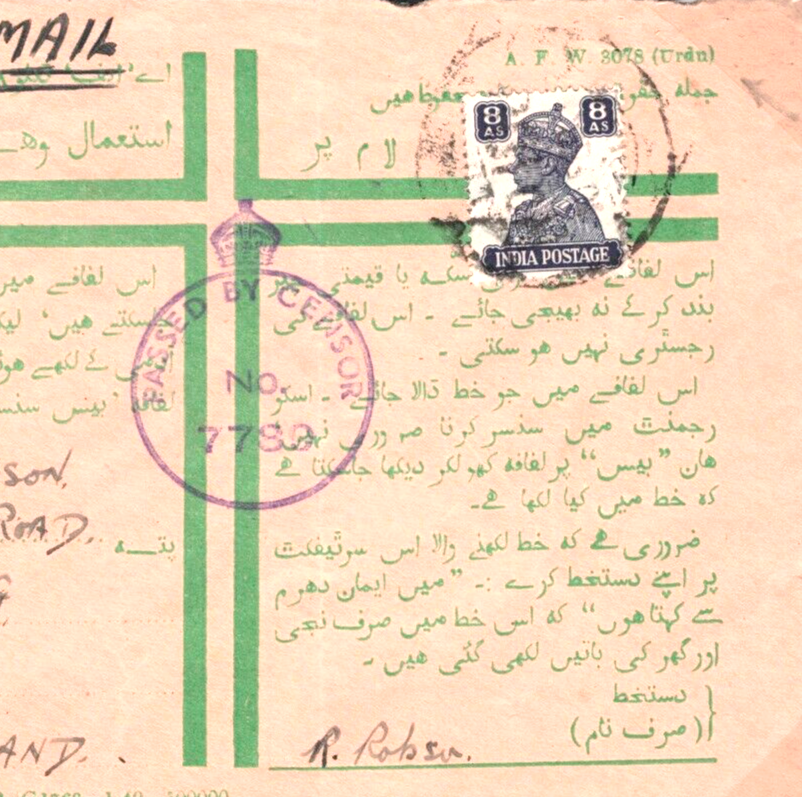 MAIL
A. F. W. 3078 (Urdu)
جمله
استعمال
لام پر
8 AS
8 AS
INDIA POSTAGE
PASSED BY CENSOR
No.
778
اس لفافے سکہ یا قیمتی
بند کر کے نہ بھیجی جائے ۔ اس لفافے کی
رجسٹری نہیں ہو سکتی ۔
اس لفافے میں جو خط ڈالا جائے ۔ اسکو
رجمنٹ میں سنسر کرنا ضروری نہیں
ھاں ”بیس“ پر لفافہ کھولکر دیکھا جاسکتا ہے
کہ خط میں کیا لکھا ہے۔
ضروری ہے کہ خط لکھنے والا اس سرٹیفکٹ
پر اپنے دستخط کرے :۔ ”میں ایمان دھرم
سے کہتا ہوں“ کہ اس خط میں صرف نجی
اور گھر کی باتیں لکھی گئی ھیں ۔
دستخط
(صرف نام)
R. Robson.
اس لفافے میں
سکتے ھیں‘
کے لکھے
لفافہ ’بیس
SON.
ROAD.
پتہ
AND.